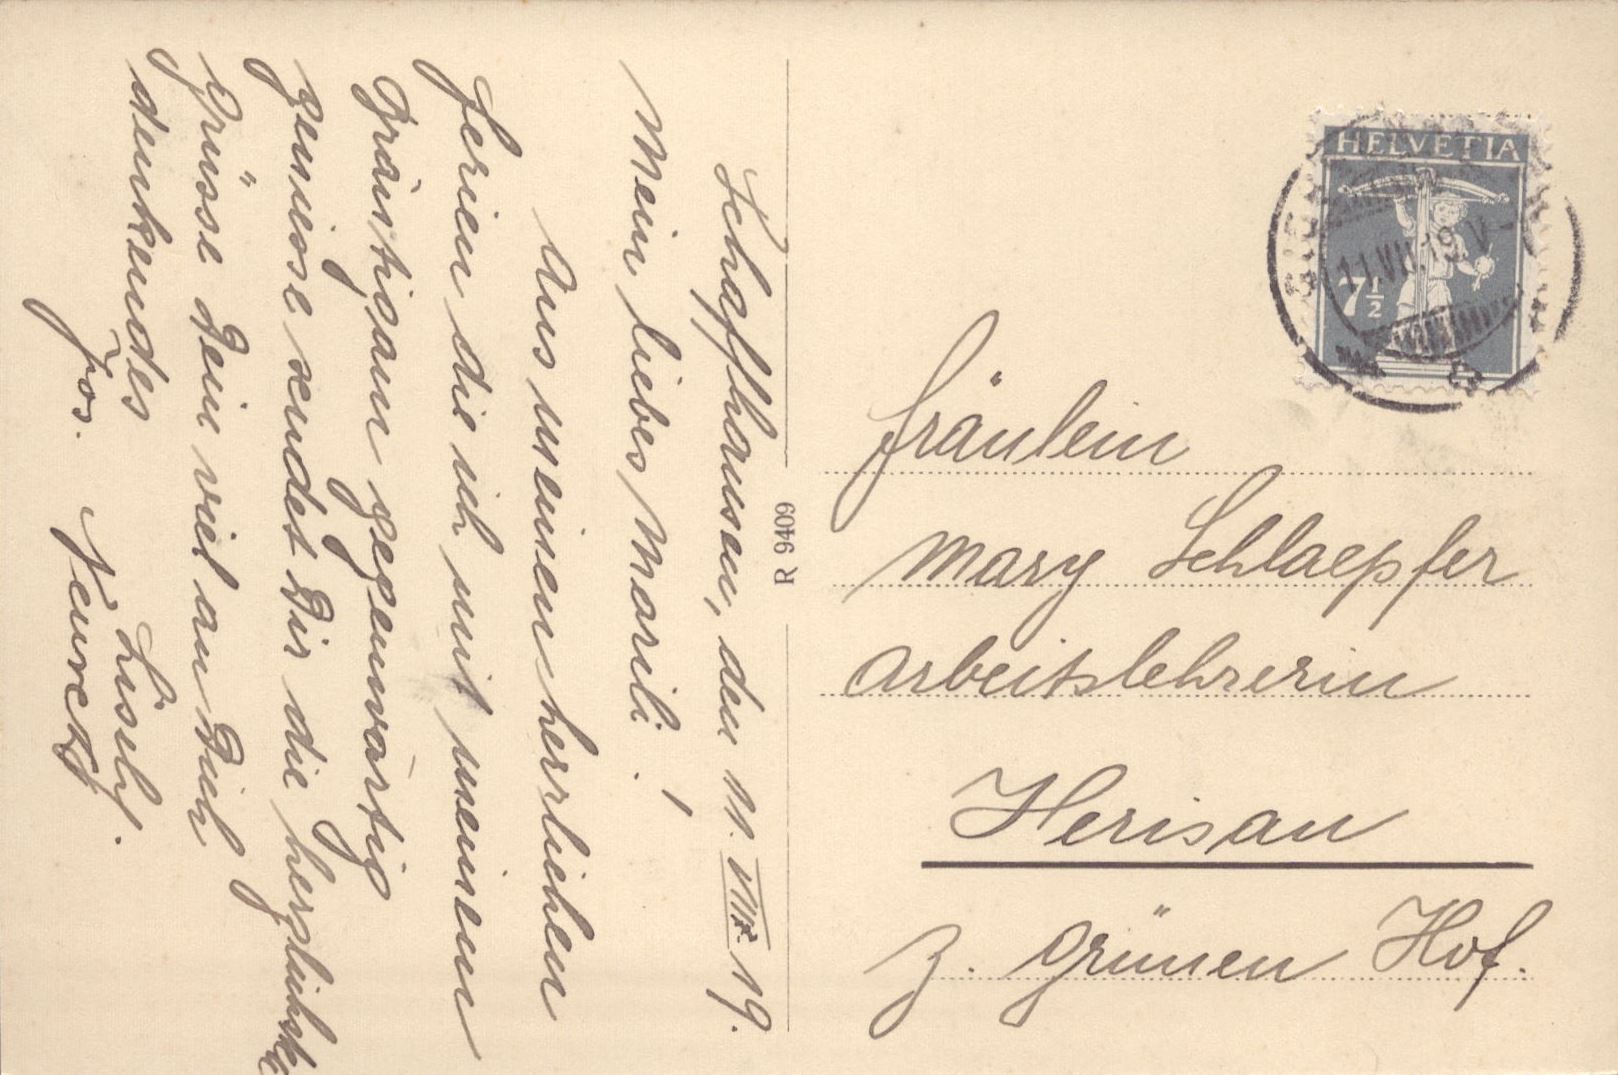 Schaffhausen, den 11. VIII. 19.
Mein liebes Marili!
Aus meinen herrlichen
Ferien die ich mit meinem
Bräutigam gegenwärtig
geniesse sendet Dir die herzlichste
Grüsse Dein viel an Dich
denkendes
Lisely.
Jos.
HELVETIA
7½
R 9409
Fräulein
Mary Schlaepfer
Arbeitslehrerin
Herisau
z. Grünen Hof.